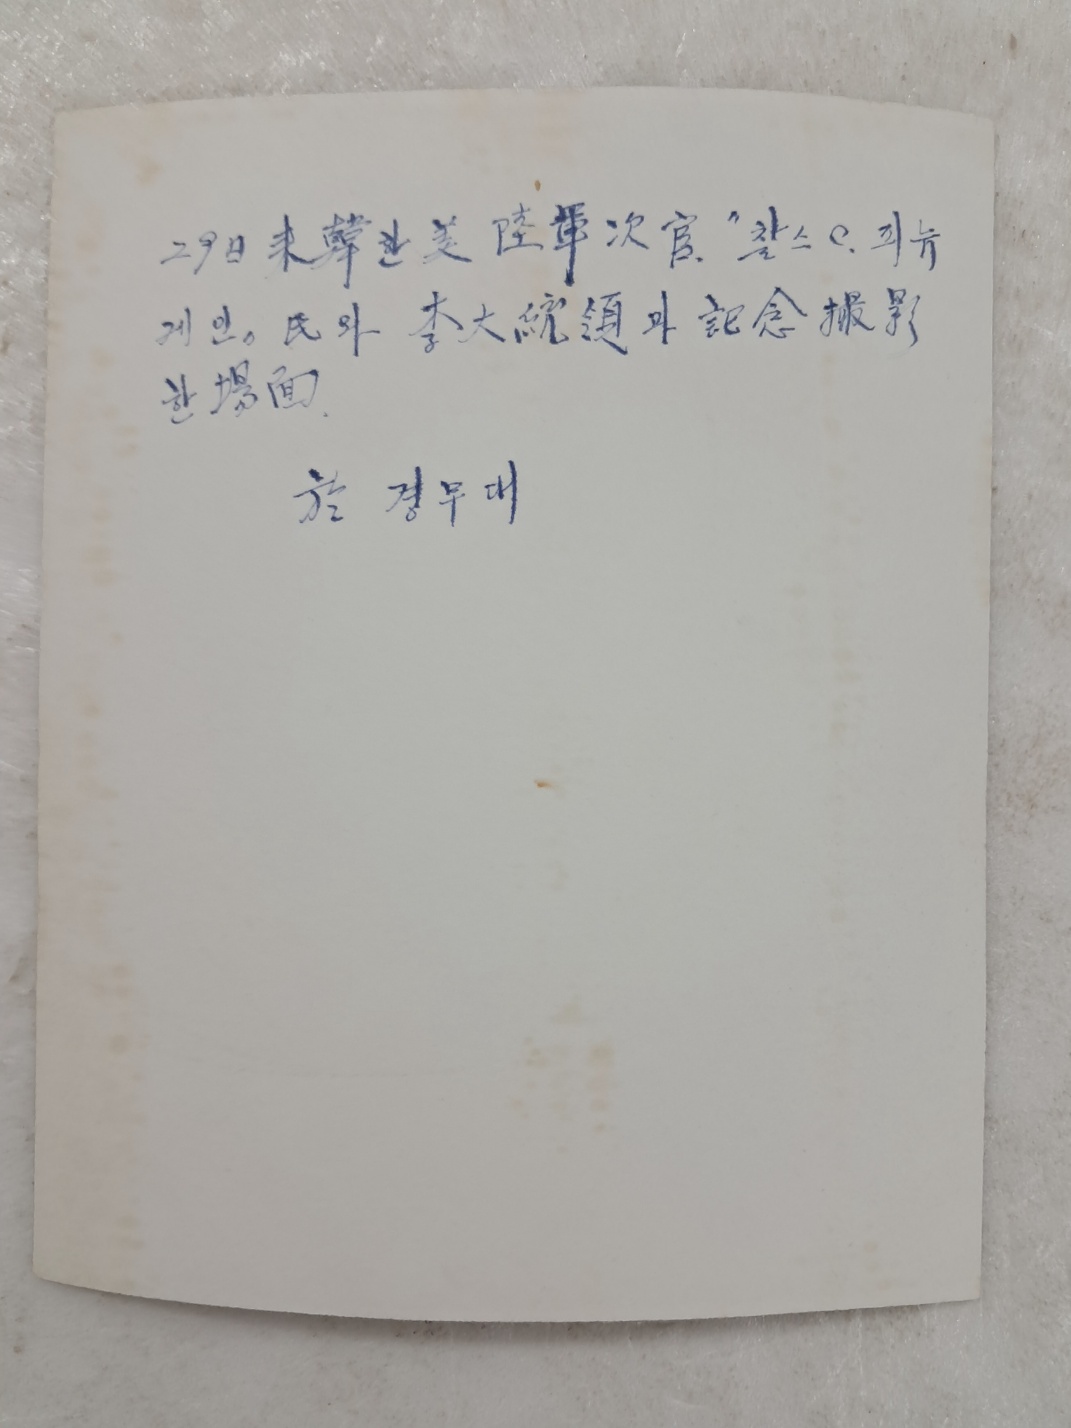 29日 来韓한 美 陸軍次官. "찰스 C. 피뉴
게인。民와 李大統領과 記念撮影
한 場面.
於 경무대